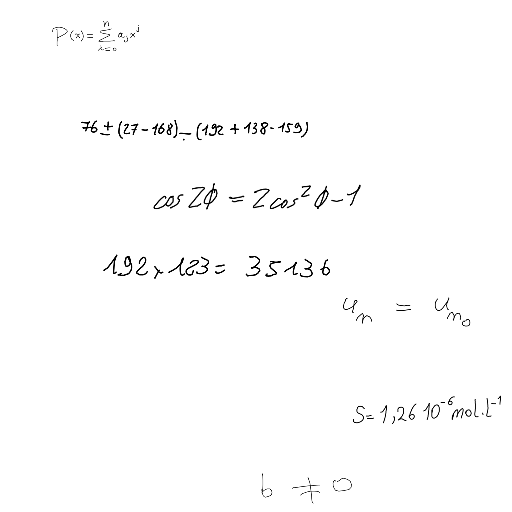 P(x) = \sum_{i=0}^{n} a_j x^j
76 ± (27 - 168) - (192 + 138 - 159)
cos 2ϕ = 2 cos² ϕ - 1
192 × 183 = 35136
u_n = u_{n_0}
S = 1,26 10⁻⁶ mol.l⁻¹
b ≠ 0